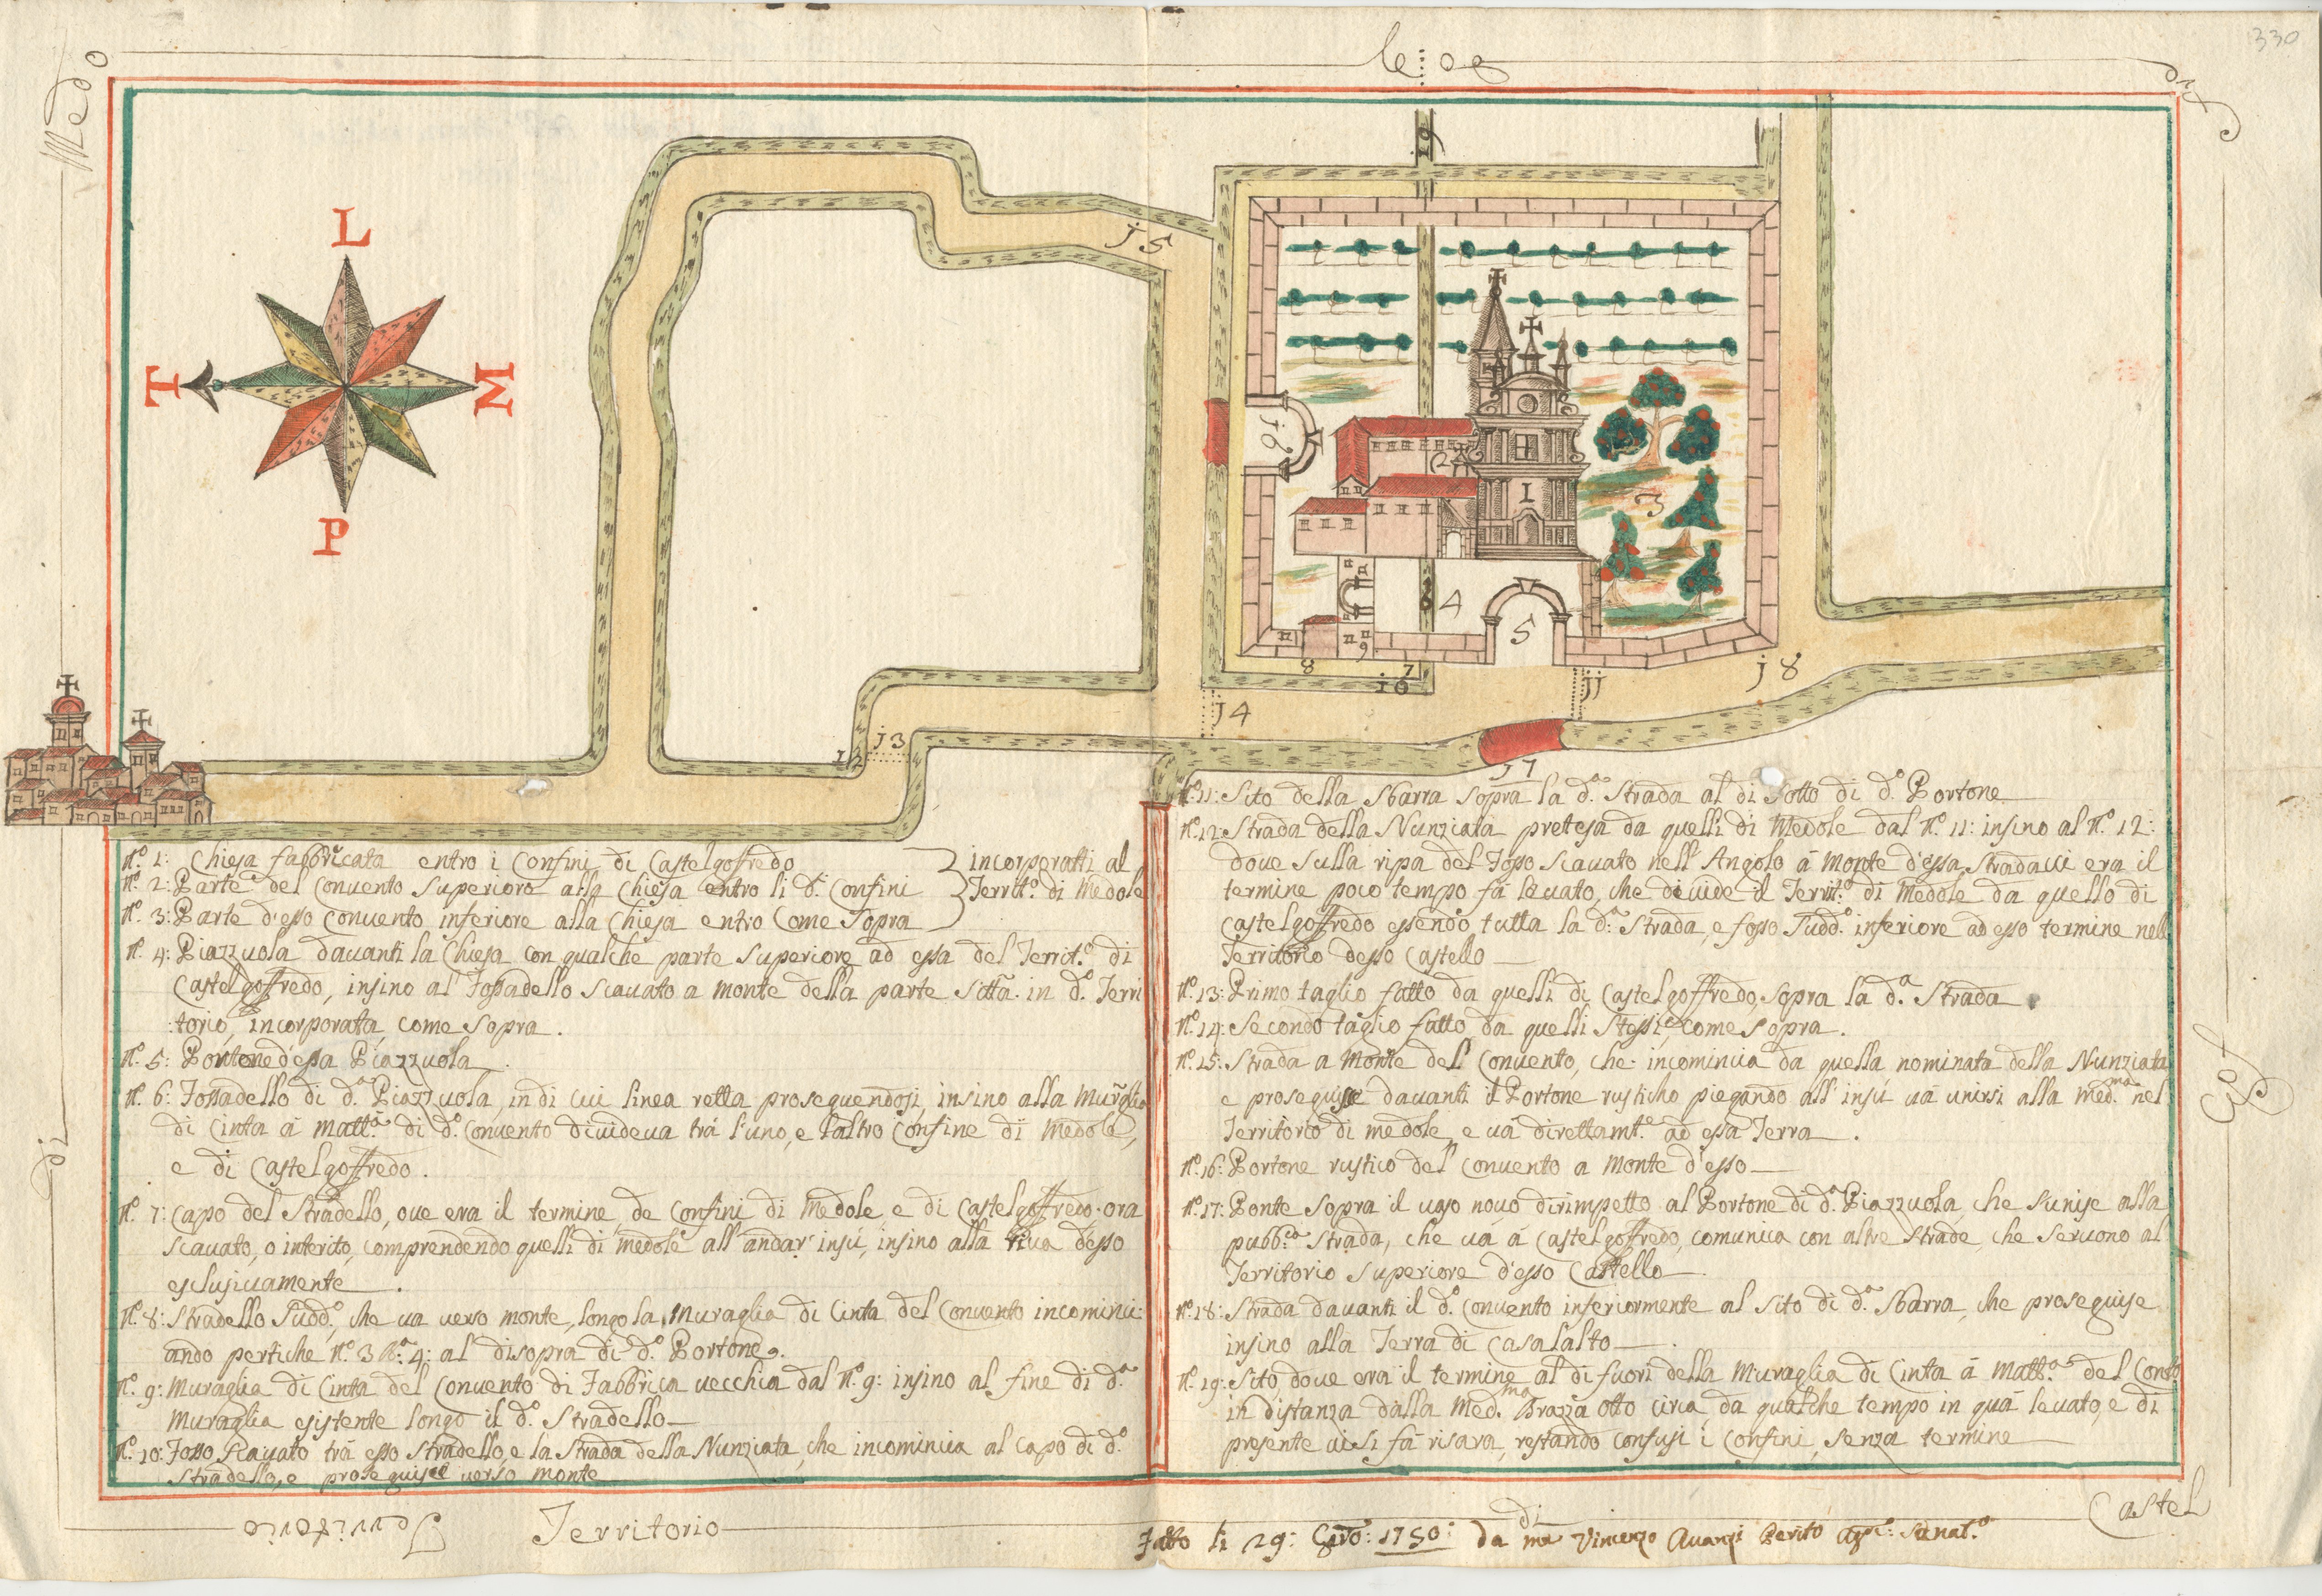 330
Medo
le : Go
L
T
M
P
19
15
16
2
1
3
4
5
6
9
8
7
10
11
18
14
13
12
17
Nº 1: Chiesa fabbricata entro i Confini di Castelgoffredo
Nº 2: Parte del Convento superiore alla Chiesa entro li d.i Confini
Nº 3: Parte d'esso Convento inferiore alla Chiesa entro Come Sopra
incorporatti al
Territ.º di Medole
Nº 4: Piazzuola davanti la Chiesa con qualche parte superiore ad essa del Territ.º di
Castelgoffredo, insino al Fossadello scavato a monte della parte sittã. in d.º Terri
:torio, incorporata come sopra.
Nº 5: Portone d'essa Piazzuola.
Nº 6: Fossadello di d.ª Piazzuola, in di cui linea retta proseguendosi, insino alla Murãglia
di Cinta ā matt.ª di d.º Convento divideva trà l'uno, e l'altro Confine di Medole,
e di Castelgoffredo.
Nº 7: Capo del Stradello, ove era il termine de Confini di Medole e di Castelgoffredo. ora
scavato, o interito, comprendendo quelli di Medole all'andar'insù, insino alla riva d'esso
esclusivamente.
Nº 8: Stradello Sudd.º, che va verso monte, longo la Muraglia di Cinta del Convento incominci:
ando pertiche Nº 3 4: al disopra di d.º Portone.
Nº 9: Muraglia di Cinta del Convento di Fabbrica vecchia dal Nº 9: insino al fine di d.ª
Muraglia esistente longo il d.º Stradello
Nº 10: Fosso scavato trà esso stradello, e la Strada della Nunziata, che incomincia al capo di d.º
Stradello, e proseguisce verso monte
Nº 11: Sito della Sbarra sopra la d.ª Strada al di sotto di d.º Portone
Nº 12: Strada della Nunziata pretesa da quelli di Medole dal Nº 11: insino al Nº 12:
dove sulla ripa del Fosso scavato nell'Angolo ā monte d'essa Strada vi era il
termine poco tempo fà levato, che divide il Territ.º di Medole da quello di
Castelgoffredo essendo tutta la d.ª Strada, e fosso Sudd.º inferiore ad esso termine nell
Territorio desso Castello
Nº 13: Primo taglio fatto da quelli di Castelgoffredo, sopra la d.ª Strada
Nº 14: Secondo taglio fatto da quelli Stessi, come sopra.
Nº 15: Strada a Monte del Convento, che incomincia da quella nominata della Nunziata
e proseguisce davanti il Portone rusticho piegando all'insù và unirsi alla med.ma nel
Territorio di Medole, e và direttamt.e ad essa Terra.
Nº 16: Portone rustico del Convento a Monte d'esso
Nº 17: Ponte sopra il vaso novo dirimpetto al Portone di d.ª Piazzuola, che s'unise alla
pubb.ca Strada, che và ā Castelgoffredo, comunica con altre Strade, che servono al
Territorio superiore d'esso Castello
Nº 18: Strada davanti il d.º Convento inferiormente al Sito di d.ª Sbarra, che proseguise
insino alla Terra di Casalalto
Nº 19: Sito dove era il termine al di fuori della Muraglia di Cinta ā matt.ª del Conto
in distanza dalla Med.ma Brazza otto circa da qualche tempo in quà levato, e di
presente vi si fà risara, restando confusi i confini, senza termine
di
Territorio
Territorio
di
Castel
Gof
fredo
Fatto li 29: Genº: 1750: da me Vincenzo Avanzi Perito